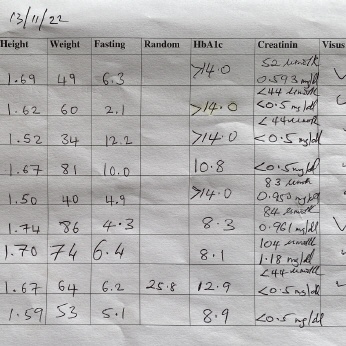 13/11/22
Height Weight Fasting Random HbA1c Creatinin Visus
52 µmol/l
1.69 49 6.3 >14.0 0.593 mg/dl
<44 µmol/l
1.62 60 2.1 >14.0 <0.5 mg/dl
<44 µmol/l
1.52 34 12.2 >14.0 <0.5 mg/dl
1.67 81 10.0 10.8 <0.5 mg/dl
83 µmol/l
1.50 40 4.9 >14.0 0.950 mg/dl
84 µmol/l
1.74 86 4.3 8.3 0.961 mg/dl
104 µmol/l
1.70 74 6.4 8.1 1.18 mg/dl
<44 µmol/l
1.67 64 6.2 25.8 12.9 <0.5 mg/dl
1.59 53 5.1 8.9 <0.5 mg/dl